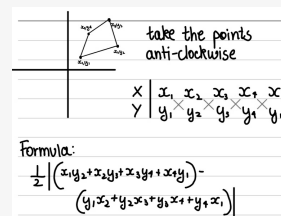 x₄y₄
x₃y₃
x₂y₂
x₁y₁
take the points
anti-clockwise
X | x₁ x₂ x₃ x₄ x
Y | y₁ y₂ y₃ y₄ y₁
Formula:
½ |(x₁y₂+x₂y₃+x₃y₄+x₄y₁)-
(y₁x₂+y₂x₃+y₃x₄+y₄x₁)|